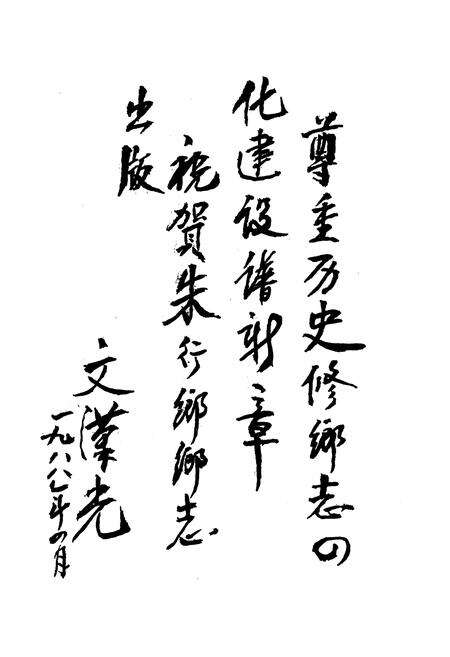 尊重历史修鄉志四
化建设譜新章
祝賀朱行鄉鄉志
出版
文漢光
一九八八年四月